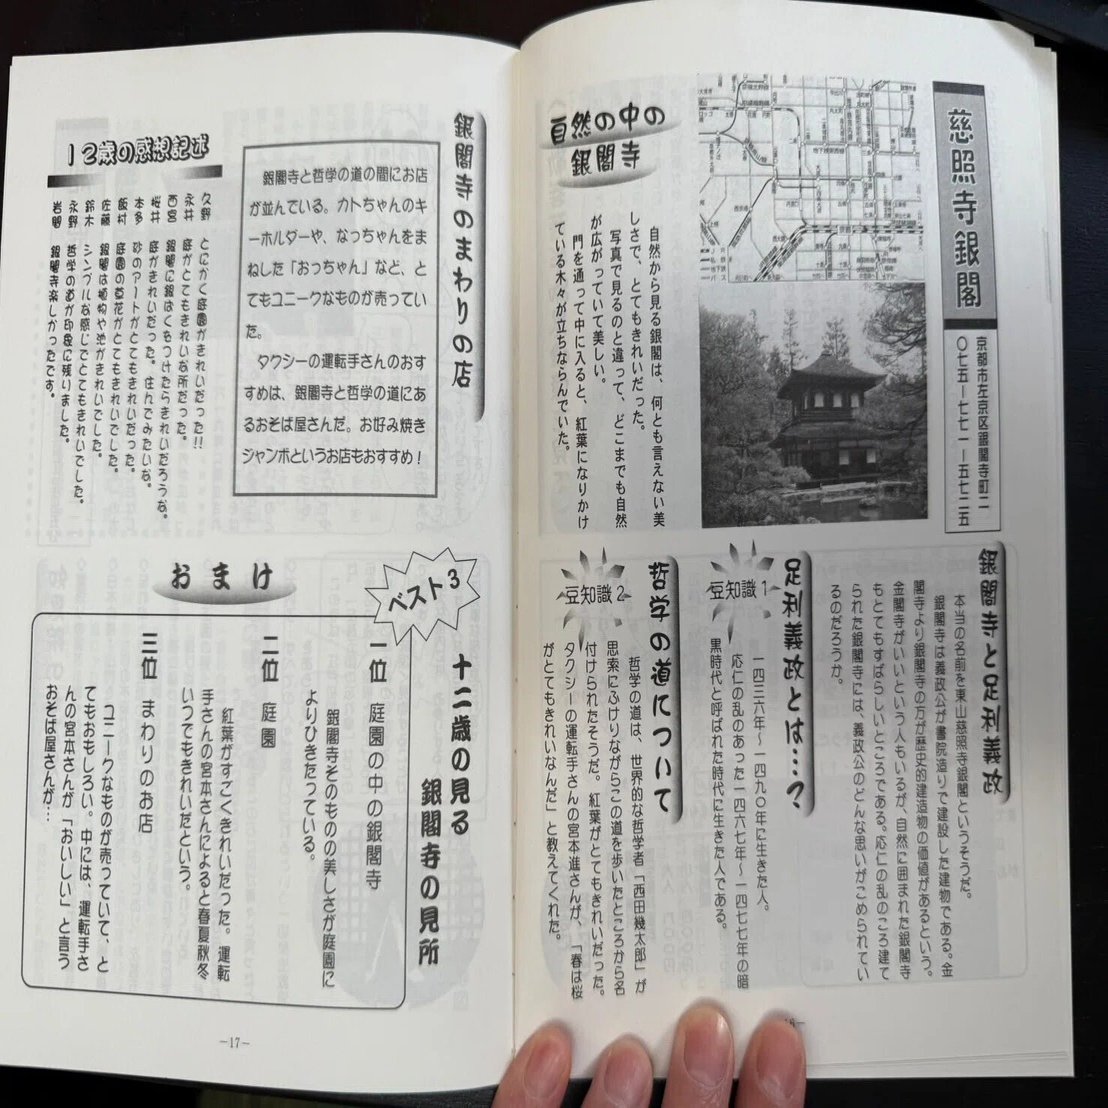 慈照寺銀閣
京都市左京区銀閣寺町二
〇七五―七七一―五七二五
自然の中の
銀閣寺
自然から見る銀閣は、何とも言えない美
しさで、とてもきれいだった。
写真で見るのと違って、どこまでも自然
が広がっていて美しい。
門を通って中に入ると、紅葉になりかけ
ている木々が立ちならんでいた。
銀閣寺と足利義政
本当の名前を東山慈照寺銀閣というそうだ。
銀閣寺は義政公が書院造りで建設した建物である。金
閣寺より銀閣寺の方が歴史的建造物の価値があるという。
金閣寺がいいという人もいるが、自然に囲まれた銀閣寺
もとてもすばらしいところである。応仁の乱のころ建て
られた銀閣寺には、義政公のどんな思いがこめられてい
るのだろうか。
足利義政とは…?
豆知識1
一四三六年~一四九〇年に生きた人。
応仁の乱のあった一四六七年~一四七七年の暗
黒時代と呼ばれた時代に生きた人である。
哲学の道について
豆知識2
哲学の道は、世界的な哲学者「西田幾太郎」が
思索にふけりながらこの道を歩いたところから名
付けられたそうだ。紅葉がとてもきれいだった。
タクシーの運転手さんの宮本進さんが、「春は桜
がとてもきれいなんだ」と教えてくれた。
銀閣寺のまわりの店
銀閣寺と哲学の道の間にお店
が並んでいる。カトちゃんのキ
ーホルダーや、なっちゃんをま
ねした「おっちゃん」など、と
てもユニークなものが売ってい
た。
タクシーの運転手さんのおす
すめは、銀閣寺と哲学の道にあ
るおそば屋さんだ。お好み焼き
ジャンボというお店もおすすめ！
12歳の感想記述
久野 とにかく庭園がきれいだった!!
永井 庭がとてもきれいな所だった。
西宮 銀閣に銀はくをつけたらきれいだろうな。
桜井 庭がきれいだった。住んでみたいな。
本多 砂のアートがとてもきれいだった。
飯村 庭園の草花がとてもきれいでした。
佐藤 銀閣は植物や池がきれいでした。
鈴木 シンプルな感じでとてもきれいでした。
永野 哲学の道が印象に残りました。
岩間 銀閣寺楽しかったです。
おまけ
ベスト3
十二歳の見る
銀閣寺の見所
一位 庭園の中の銀閣寺
銀閣寺そのものの美しさが庭園に
よりひきたっている。
二位 庭園
紅葉がすごくきれいだった。運転
手さんの宮本さんによると春夏秋冬
いつでもきれいだという。
三位 まわりのお店
ユニークなものが売っていて、と
てもおもしろい。中には、運転手さ
んの宮本さんが「おいしい」と言う
おそば屋さんが…
－17－